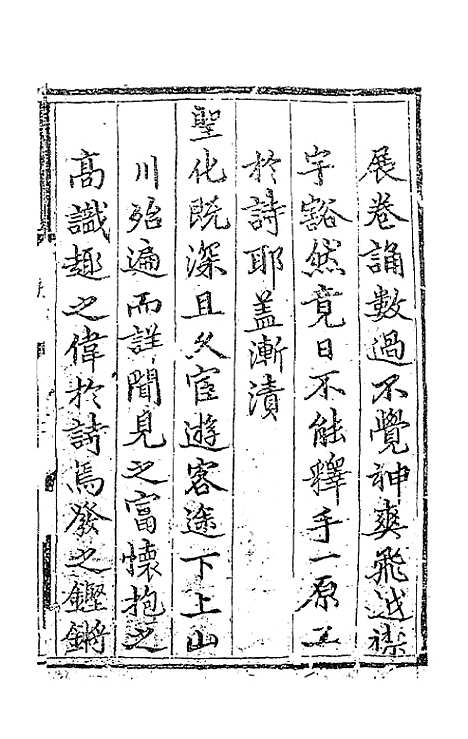 展卷誦數過不覺神爽飛越襟
宇豁然竟日不能釋手一原工
於詩耶盖漸漬
聖化既深且久宦遊客途下上山
川殆遍而詳聞見之富懷抱之
高識趣之偉於詩焉發之鏗鏘